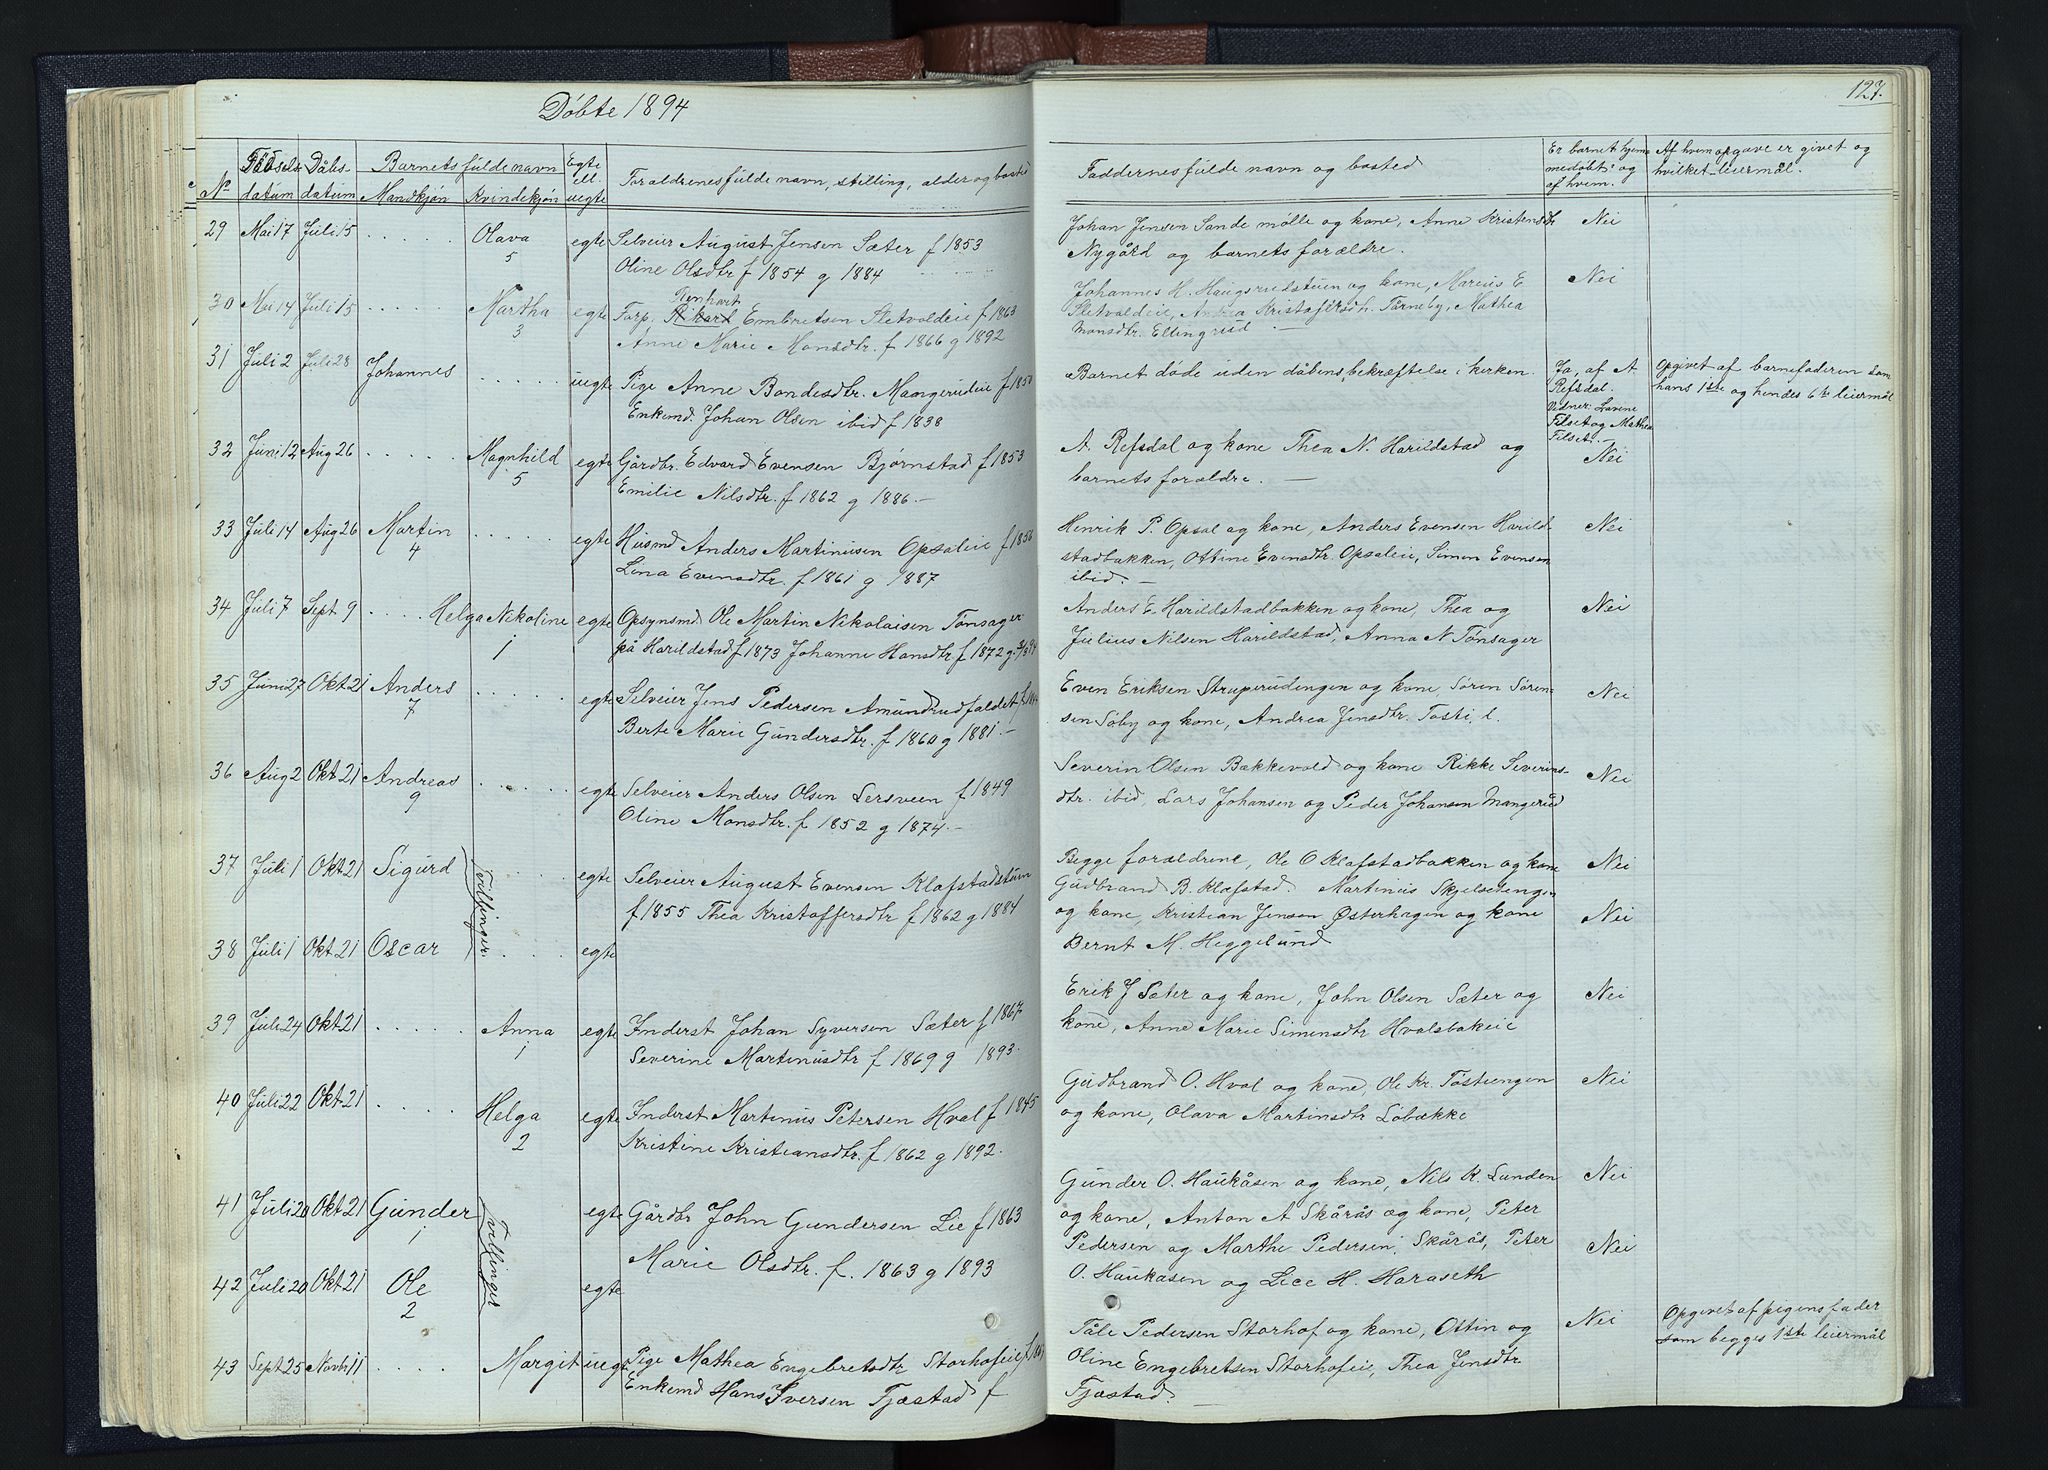 Døbte 1894
No
Fødsels-
datum
Dåbs-
datum
Barnets fulde navn
Mandkjøn
Kvindekjøn
Egte
ell.
uegte
Forældrenes fulde navn, stilling, alder og bosted
29 Mai 17 Juli 15 Olava 5 egte Selveier August Jensen Sæter f 1853
Oline Olsdtr f 1854 g 1884
30 Mai 14 Juli 15 Martha 3 egte Forp. Renhart Embretsen Sletvoldeie f 1863
Anne Marie Monsdtr. f 1866 g 1892
31 Juli 2 Juli 28 Johannes uegte Pige Anne Bondesdtr. Mangerudeie f 1850
Enkemd. Johan Olsen ibid f 1838
32 Juni 12 Aug 26 Magnhild 5 egte Gårdbr. Edvard Evensen Bjørnstad f 1853
Emilie Nilsdtr. f 1862 g 1886.
33 Juli 14 Aug 26 Martin 4 egte Husmd Anders Martinusen Opsaleie f 1856
Lina Evensdtr. f 1861 g 1887
34 Juli 7 Sept 9 Helga Nikoline 1 egte Opsynsmd Ole Martin Nikolaisen Tønsager
på Harildstad f 1873 Johanne Hansdtr f 1872 g.
35 Juni 27 Okt 21 Anders 7 egte Selveier Jens Pedersen Amundrudfaldet
Berte Marie Gundersdtr. f 1860 g 1881.
36 Aug 2 Okt 21 Andreas 9 egte Selveier Anders Olsen Lersveen f 1849
Oline Monsdtr. f 1852 g 1874.
37 Juli 1 Okt 21 Sigurd Tvillinger. egte Selveier August Evensen Klafstadstuen
f 1855 Thea Kristoffersdtr f 1862 g 1884
38 Juli 1 Okt 21 Oscar egte
39 Juli 24 Okt 21 Anna 1 egte Inderst Johan Syversen Sæter f 1867
Severine Martinusdtr f 1869 g 1893.
40 Juli 22 Okt 21 Helga 2 egte Inderst Martinus Petersen Hval f 1845
Kristine Kristiansdtr. f 1862 g 1892.
41 Juli 20 Okt 21 Gunder 1 Tvillinger egte Gårdbr John Gundersen Lie f 1863
Marie Olsdtr. f. 1863 g 1893
42 Juli 20 Okt 21 Ole 2 egte
43 Sept 25 Novbr 11 Margit uegte Pige Mathea Engebretsdtr Storhofeie
Enkemd Hans Iversen Fjæstad f
127.
Faddernes fulde navn og bosted
Er barnet hjem-
medøbt? og
af hvem.
Af hvem opgave er givet og
hvilket leiermål.
Johan Jensen Sande mølle og kone, Anne Kristensdtr Nei
Nygård og barnets forældre.
Johannes H. Haugsrudstuen og kone, Marius E Nei
Sletvoldeie, Andrea Kristofersdtr. Tørneby, Mathea
Monsdtr. Ellingrud.
Barnet døde uden dåbens bekræftelse i kirken. Ja, af A Opgivet af barnefaderen som
Refsdal. hans 1ste og hendes 6te leiermål
Vidner: Lavene
Filset og Mathea
Filset.
A. Refsdal og kone Thea N. Harildstad og Nei
barnets forældre.
Henrik P. Opsal og kone, Anders Evensen Harild- Nei
stadbakken, Ottine Evensdtr. Opsaleie, Simen Evensen
ibid.
Anders E. Harildstadbakken og kone, Thea og Nei
Julius Nilsen Harildstad, Anna N Tønsager
Even Eriksen Struperudengen og kone, Søren Søren- Nei
sen Søby og kone, Andrea Jensdtr.
Severin Olsen Bækkevold og kone Rikke Severins- Nei
dtr. ibid, Lars Johansen og Peder Johansen Mangerud
Begge forældrene, Ole O Klafstadbakken og kone Nei
Gudbrand B. Klafstad. Martinus Skjelsedengen
og kone, Kristian Jenson Østerhagen og kone Nei
Bernt M. Heggelund
Erik J Sæter og kone, John Olsen Sæter og Nei
kone, Anne Marie Simensdtr Hvalsbakeie
Gudbrand O. Hval og kone, Ole Kr. Tøstiengen Nei
og kone, Olava Martinsdtr Løbække
Gunder O. Haukåsen og kone, Nils K. Lunden Nei
og kone, Anton A Skårås og kone, Peter
Pedersen og Marthe Pedersen, Skårås, Peter Nei
O. Haukåsen og Lice H. Haraseth
Tåle Pedersen Storhof og kone, Ottin og Nei Opgivet af pigens fader
Oline Engebretsen Storhofeie, Thea Jensdtr. som begges 1ste leiermål
Fjæstad.